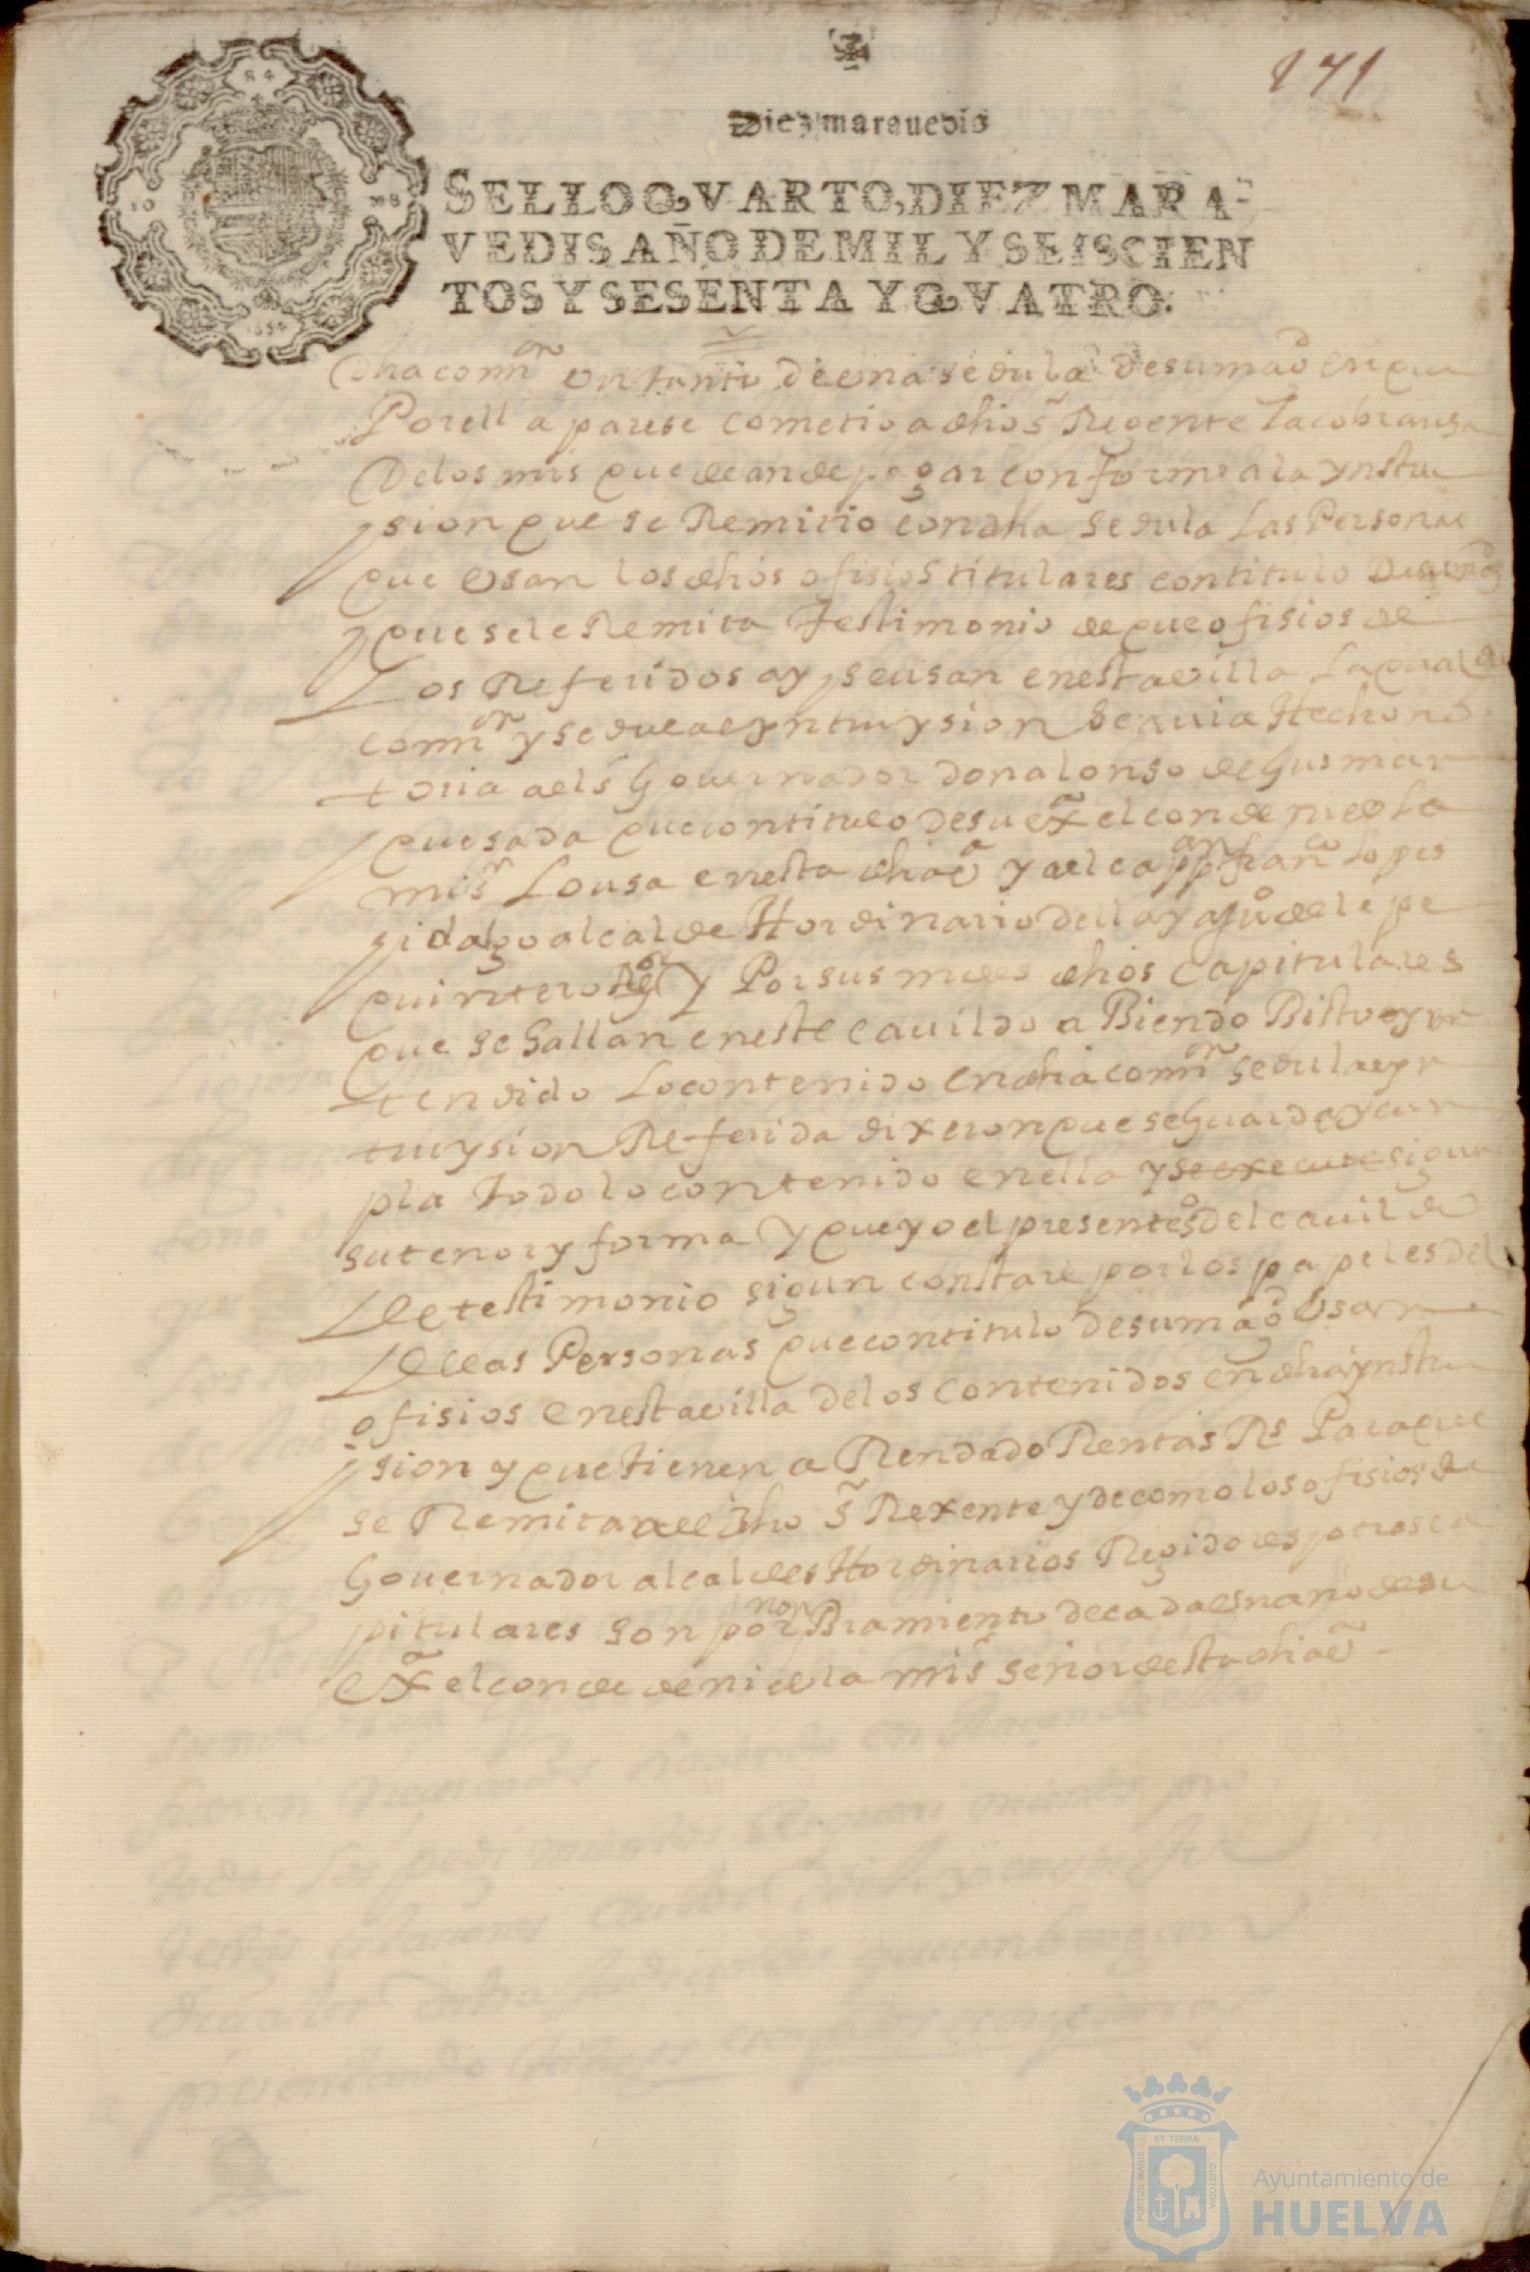 171
Diez marauedis
SELLO QVARTO, DIEZ MARA-
VEDIS AÑO DE MIL Y SEISCIEN
TOS Y SESENTA Y QVATRO.
dha comⁿ un tanto de una sedula de su magᵈ en que
Por ella parese cometio a dho sʳ Regente la cobransa
De los mrs que dean de pagar conforme a la ynstru
sion que se Remitio con dha sedula las Personas
que usan los dhos ofisios titulares con titulo De su
y que se le Remita testimonio de que ofisios de
Los Referidos ay y se usan en esta villa La qual
comⁿ y sedula e yntruysion se auia Hecho no
toria a el sʳ Gouernador don alonso de Gusman
quesada que con titulo de su exᵃ el conde niebla
mi sʳ lo usa en esta dha vᵃ y a el capᵃⁿ franᶜᵒ lopes
hidalgo alcalde Hordinario della y a juᵒ de lepe
quintero Regᵒʳ y Por sus mrdes dhos capitulares
que se hallan en este cauildo a Biendo Bisto y en
tendido Lo contenido en dha comⁿ sedula e yn
truysion Referida dixeron que se Guarde y cun
pla todo lo contenido en ella y se execute sigun
su tenor y forma y que yo el presente sⁿᵒ del cauildo
De testimonio sigun constare por los papeles del
De las Personas que con titulo de su magᵈ usan
ofisios en esta villa de los contenidos en dha ynstru
sion y que tienen a Rendado Rentas Rˢ Para que
se Remita a el dho sʳ Rexente y de como los ofisios de
Gouernador alcaldes Hordinarios Regidores y otros ca
pitulares son por nonBramiento de cada un año de su
exᵃ el conde de niebla mi sʳ señor desta dha vᵃ
Ayuntamiento de
HUELVA
PORTUS MARIS
ET TERRÆ
CUSTODIA